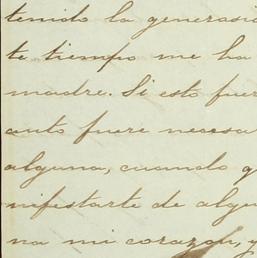 tenido la generasi
te tiempo me ha
madre. Si esto fuer
anto fuere necesa
alguna, cuando q
nifestarte de algu
na mi corazon, y